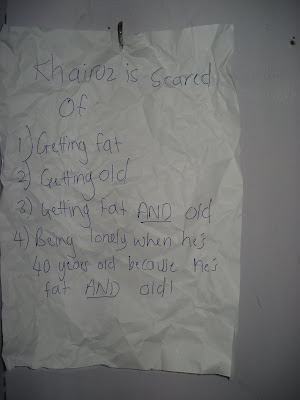 Khairoz is scared
Of
1) Getting fat
2) Getting old
3) Getting fat AND old
4) Being lonely when he's
40 years old because he's
fat AND old!